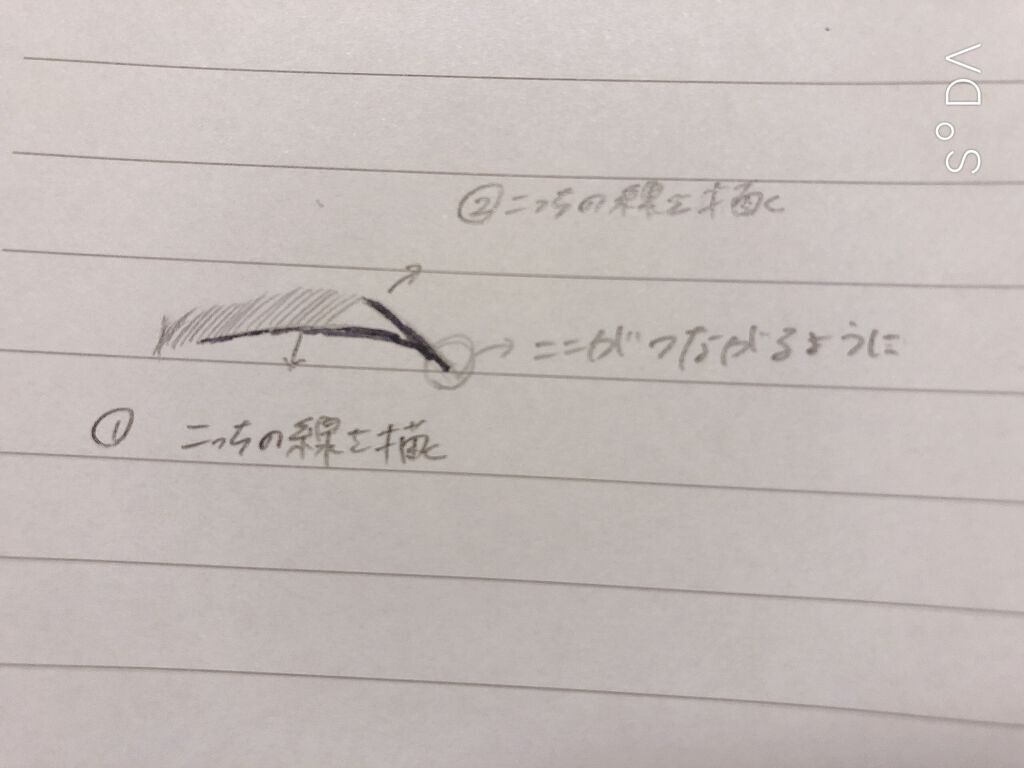 ②こっちの線を描く
ここがつながるように
① こっちの線を描く